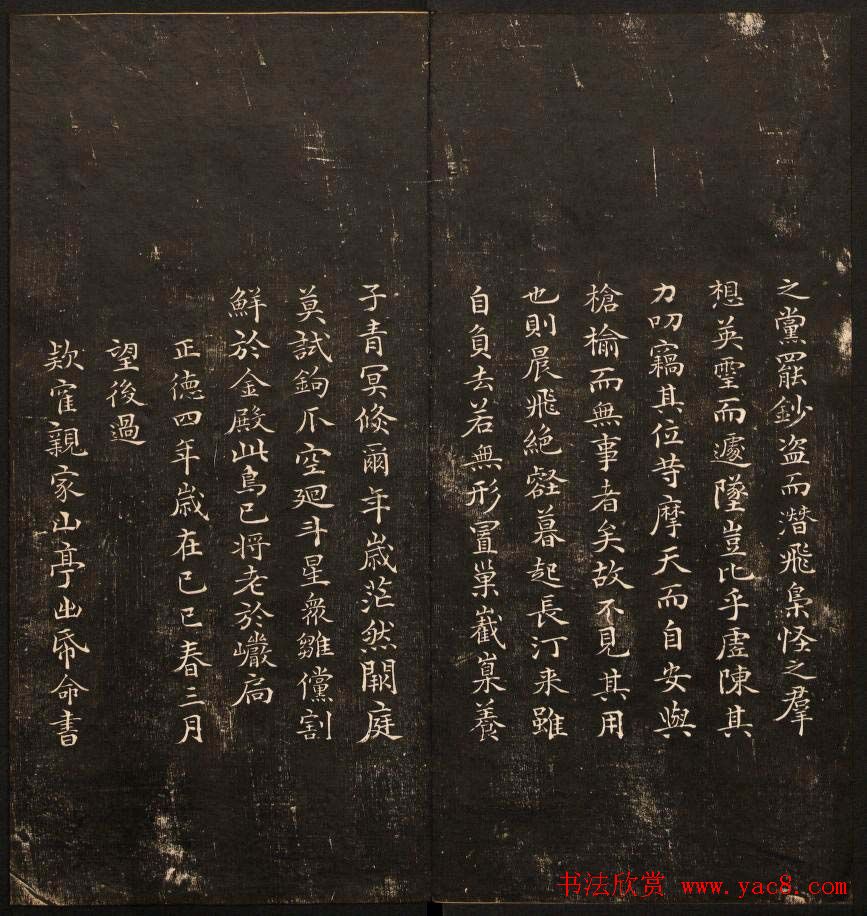 之黨罷鈔盗而潜飛梟怪之羣
想英霊而遽墜豈比乎虚陳其
力叨竊其位等摩天而自安與
槍榆而無事者矣故不見其用
也則晨飛絶壑暮起長汀来雖
自負去若無形置巢嶻嶪養
子青冥倏爾年歲茫然闕庭
莫試鉤爪空廻斗星衆雛儻割
鮮於金殿此鳥已将老於巖扃
正德四年歲在己巳春三月
望後過
欵寉親家山亭出帋命書
书法欣赏 www.yac8.com